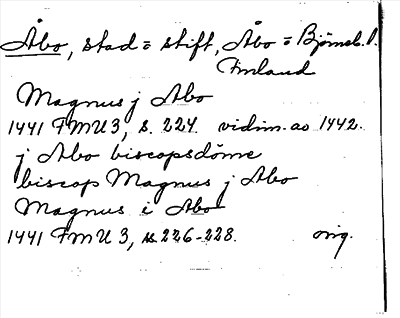 Åbo, stad = stift, Åbo = Björneb. l.
Finland
Magnus j Abo
1441 FMU 3, s. 224. vidim. av 1442.
j Abo biscopsdöme
biscop Magnus j Abo
Magnus i Abo
1441 FMU 3, s. 226-228. orig.